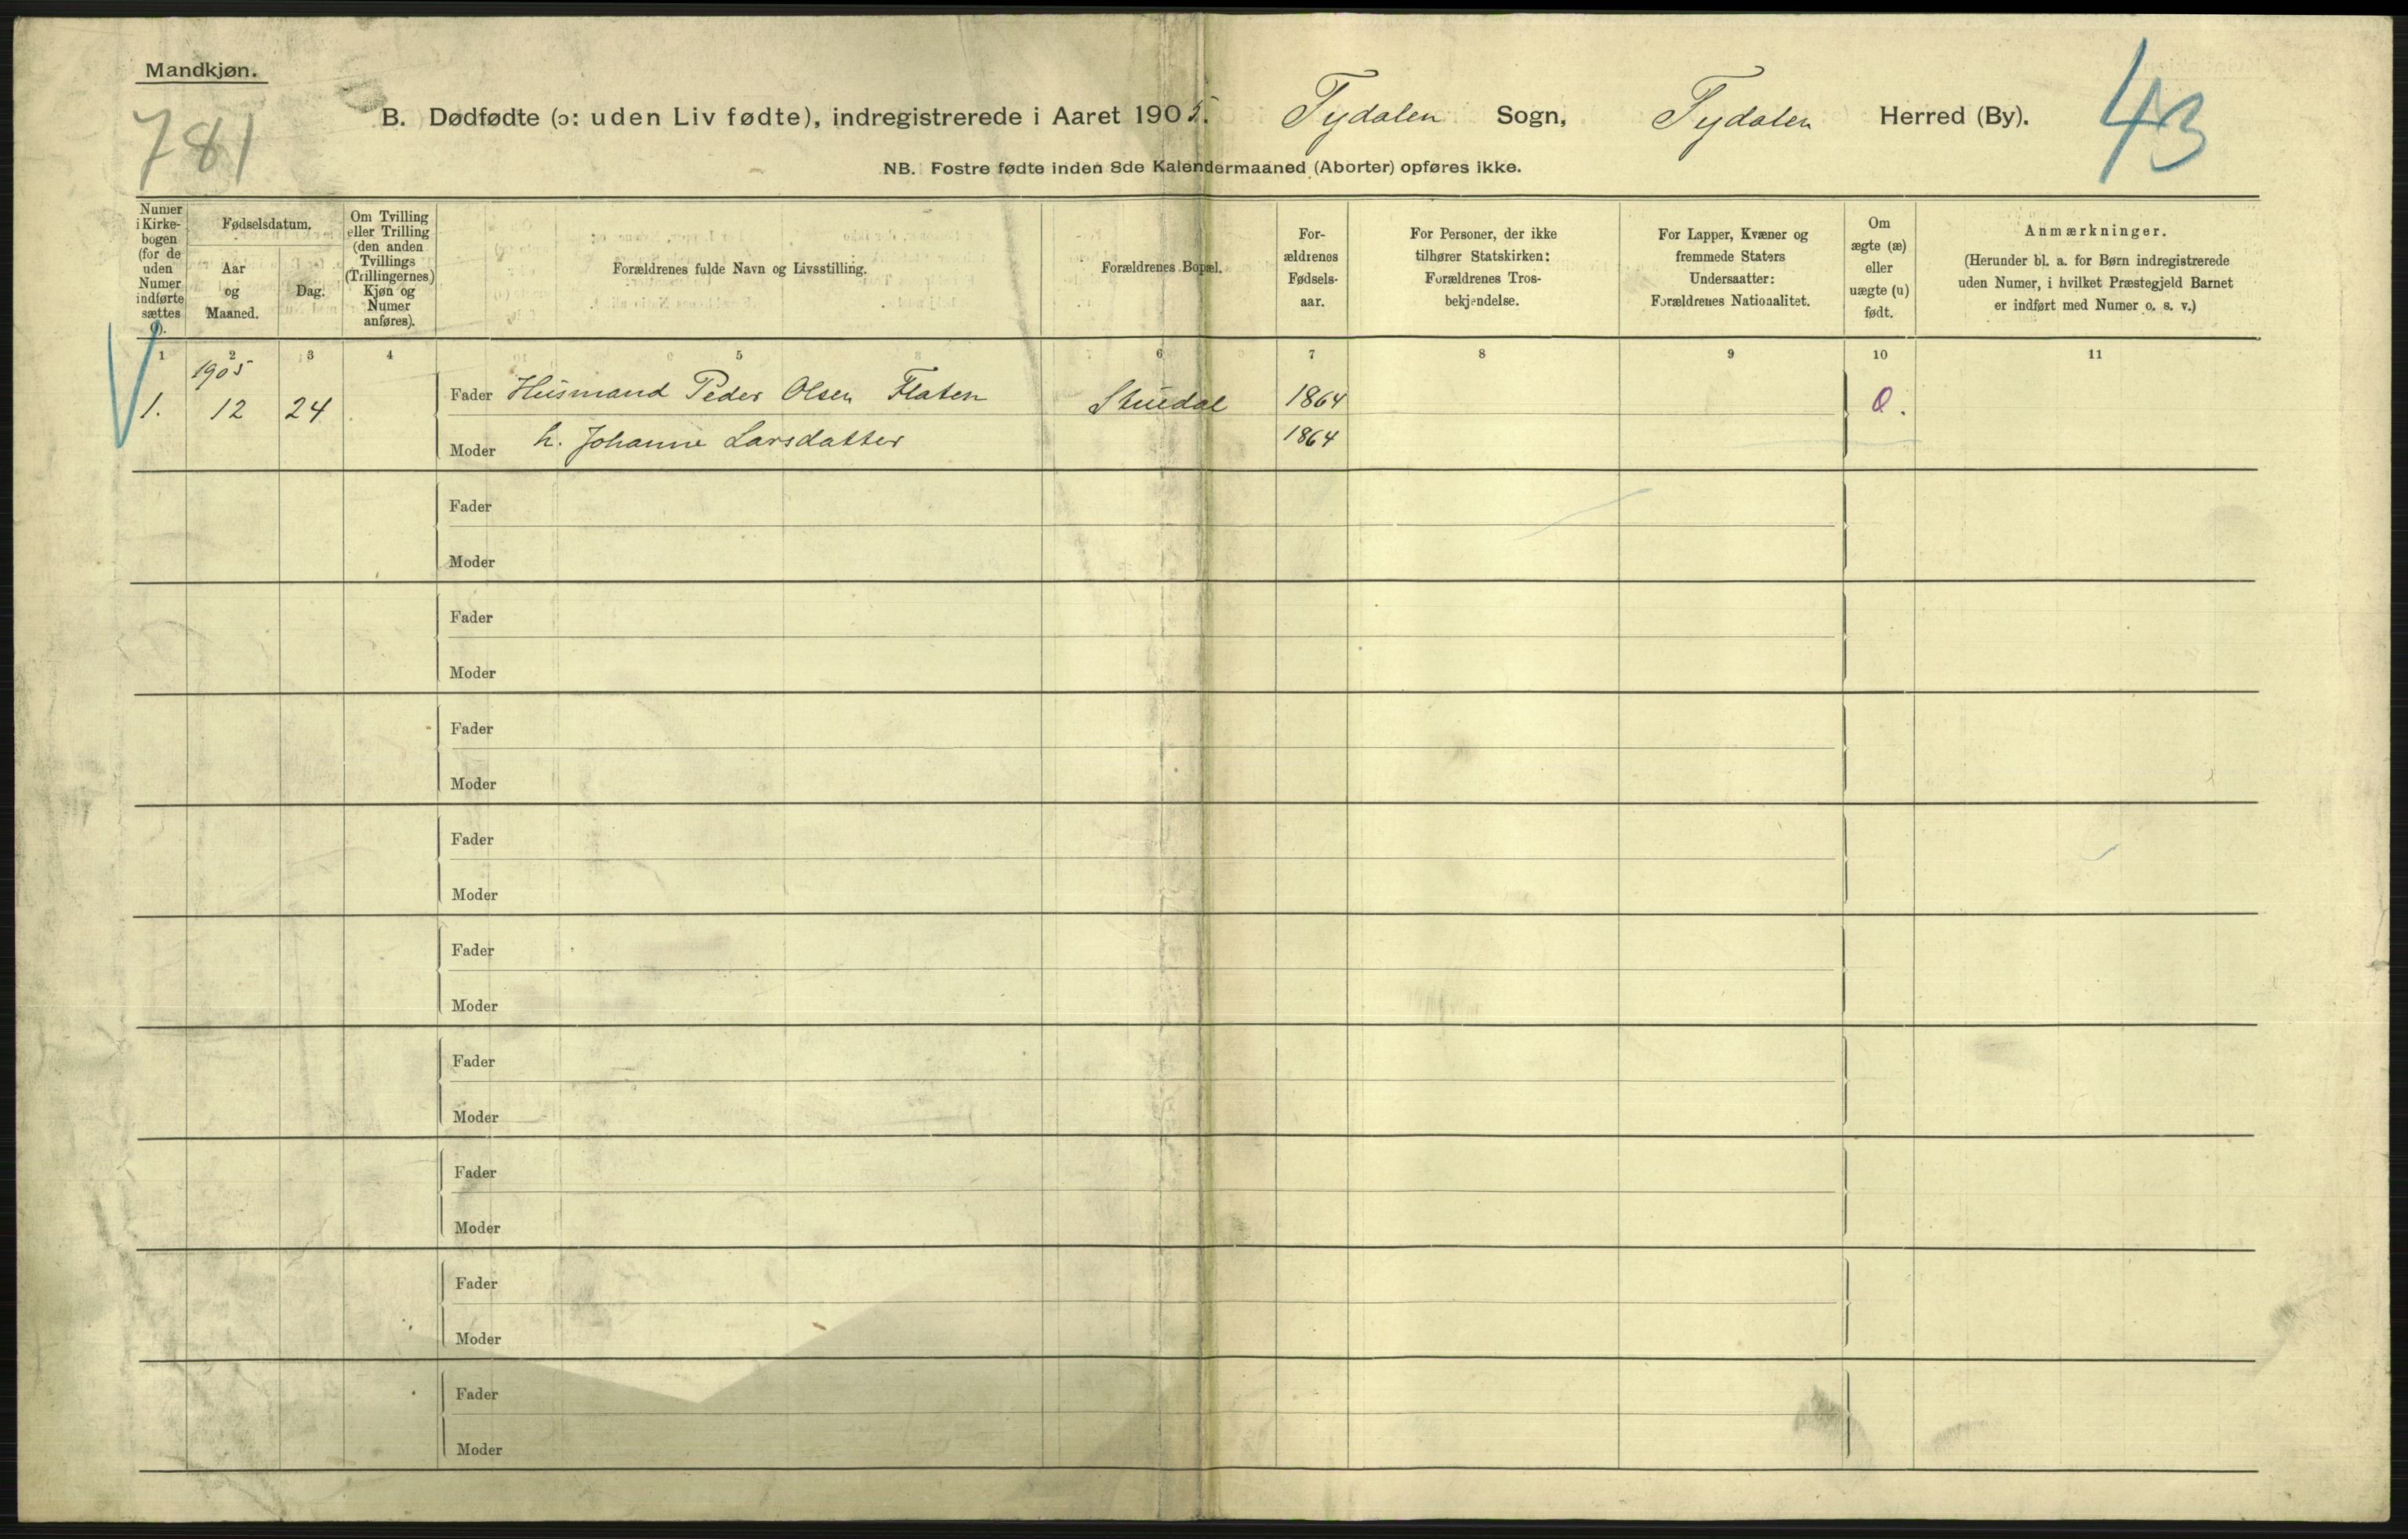 Mandkjøn.
781
B. Dødfødte (ɔ: uden Liv fødte), indregistrerede i Aaret 1905. Tydalen Sogn, Tydalen Herred (By).
43
NB. Fostre fødte inden 8de Kalendermaaned (Aborter) opføres ikke.
Numer i Kirke-bogen (for de uden Numer indførte sættes 0).
Fødselsdatum.
Aar og Maaned.
Dag.
Om Tvilling eller Trilling (den anden Tvillings (Trillingernes) Kjøn og Numer anføres).
Forældrenes fulde Navn og Livsstilling.
Forældrenes Bopæl.
For-ældrenes Fødsels-aar.
For Personer, der ikke tilhører Statskirken: Forældrenes Tros-bekjendelse.
For Lapper, Kvæner og fremmede Staters Undersaatter: Forældrenes Nationalitet.
Om ægte (æ) eller uægte (u) født.
Anmærkninger.
(Herunder bl. a. for Børn indregistrerede uden Numer, i hvilket Præstegjeld Barnet er indført med Numer o. s. v.)
1 2 3 4 5 6 7 8 9 10 11
1905
1. 12 24 Fader Husmand Peder Olsen Flaten Stuedal 1864
Moder h. Johanne Larsdatter 1864
Fader
Moder
Fader
Moder
Fader
Moder
Fader
Moder
Fader
Moder
Fader
Moder
Fader
Moder
Fader
Moder
Fader
Moder